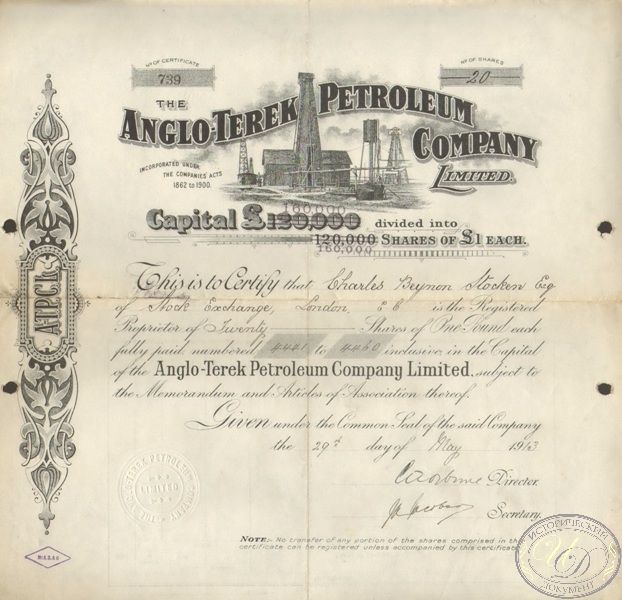 No OF CERTIFICATE
739
No OF SHARES
20
THE
ANGLO-TEREK PETROLEUM
COMPANY
LIMITED.
INCORPORATED UNDER
THE COMPANIES' ACTS
1862 to 1900.
160,000
Capital £120,000 divided into
120,000 SHARES OF £1 EACH.
160,000
ATPCL
This is to Certify that Charles Beynon Stocken Esq
of Stock Exchange, London, E C is the Registered
Proprietor of Twenty Shares of One Pound each
fully paid, numbered 4441 to 4460 inclusive, in the Capital
of the Anglo-Terek Petroleum Company Limited, subject to
the Memorandum and Articles of Association thereof.
Given under the Common Seal of the said Company
the 29th day of May 1913
Director.
Secretary.
THE ANGLO-TEREK PETROLEUM COMPANY
LIMITED
NOTE:- No transfer of any portion of the shares comprised in this
certificate can be registered unless accompanied by this certificate.
ИСТОРИЧЕСКИЙ
ИД
ДОКУМЕНТ